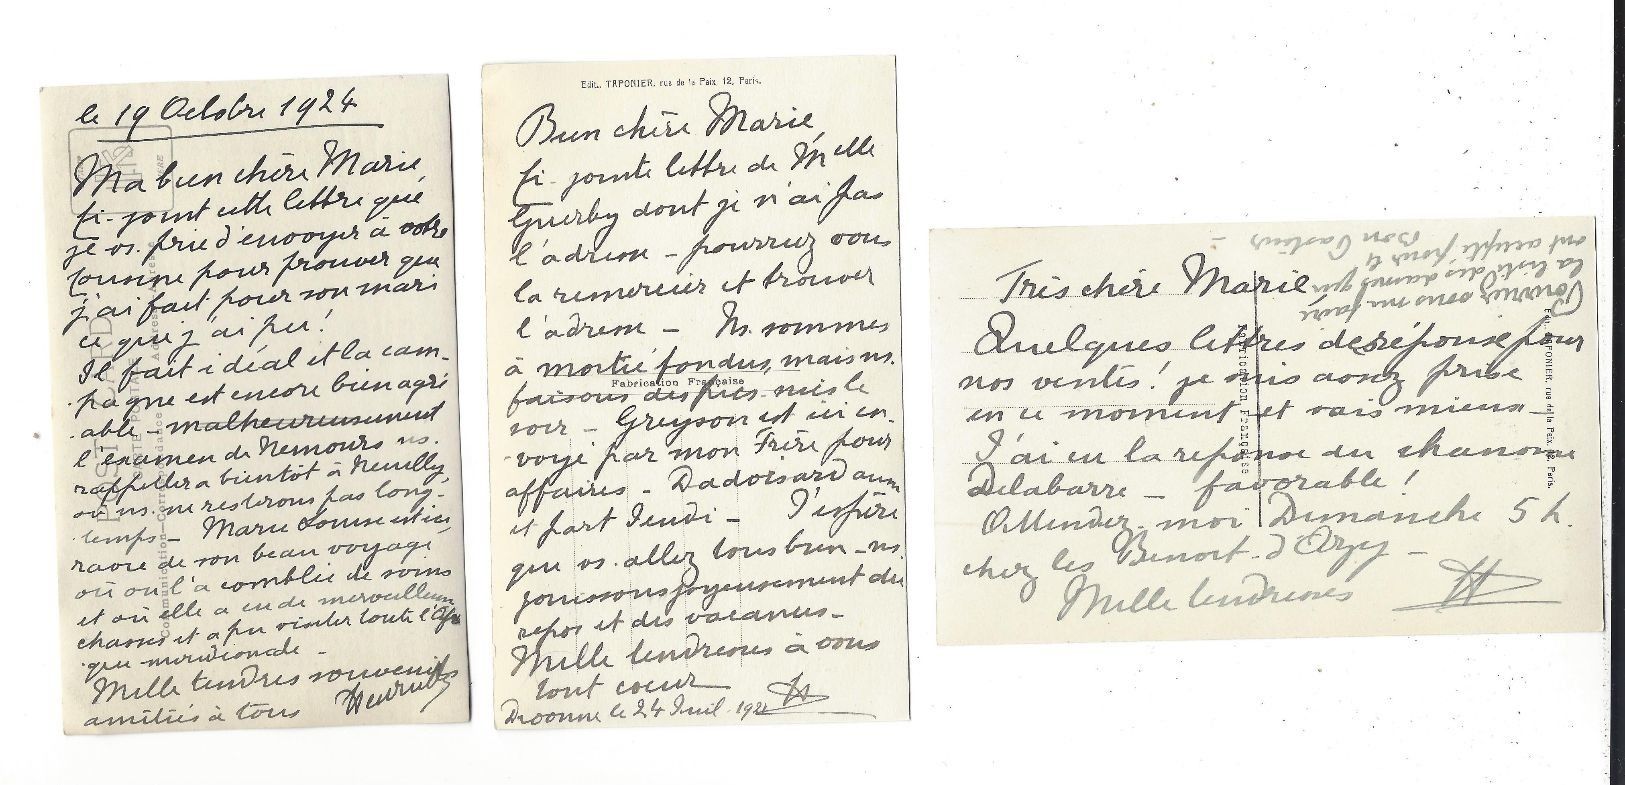 le 19 Octobre 1924
Ma bien chère Marie,
Ci-joint cette lettre que
je vs. prie d'envoyer à votre
cousine pour prouver que
j'ai fait pour son mari
ce que j'ai pu!
Il fait idéal et la cam-
pagne est encore bien agré
able - malheureusement
l'examen de Nemours ns.
rappellera bientôt à Neuilly
où ns. ne resterons pas long-
temps - Marie Louise est ici
ravie de son beau voyage
où on l'a comblée de soins
et où elle a eu de merveilleuses
chasses et a pu visiter toute l'Afri
que méridionale -
Mille tendres souvenirs
amitiés à tous
POST CARD
CARTE POSTALE
Communication-Correspondance
Adresse
Edit. TAPONIER, rue de la Paix, 12, Paris.
Bien chère Marie,
Ci-jointe lettre de Melle
dont je n'ai pas
l'adresse - pourriez vous
la remercier et trouver
l'adresse - Ns. sommes
à moitié fondus, mais ns.
faisons des
soir - Greyson est ici en-
voyé par mon Frère pour
affaires -
et part Jeudi - J'espère
que vs. allez tous bien - ns.
jouissons joyeusement du
repos et des vacances -
Mille tendresses à vous
tout coeur
le 24 Juil. 192
Fabrication Française
Très chère Marie
Quelques lettres de réponse pour
nos ventes! je suis assez prise
en ce moment et vais mieux -
J'ai eu la réponse du chanoine
Delabarre - favorable!
Attendez-moi Dimanche 5 h.
chez les Benoist d'Azy -
Mille tendresses
Pourriez vous me faire
la liste des dames qui
ont accepté pour le
Bon Pasteur -
Fabrication Française
Edit. TAPONIER, rue de la Paix, 12, Paris.